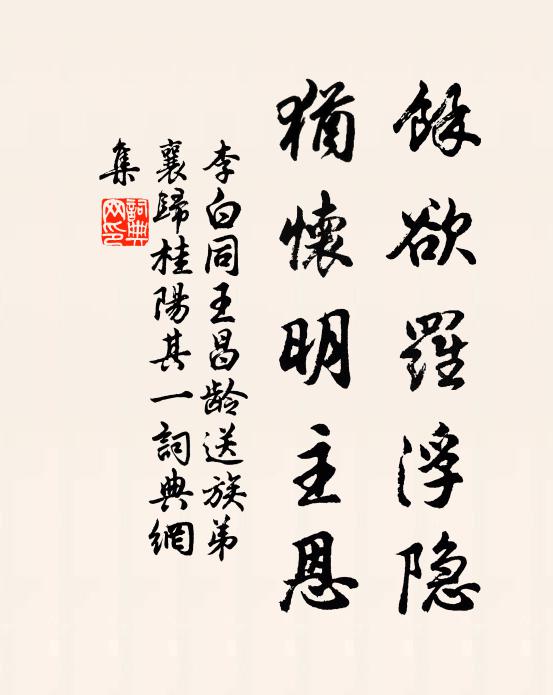 餘欲羅浮隐
猶懷明主恩
李白同王昌龄送族弟
襄歸桂陽其一詞典網
集
詞典
网印